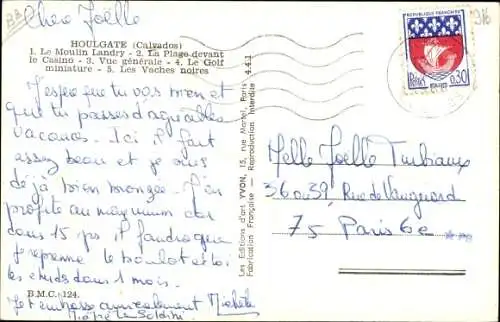 Chère Joëlle
HOULGATE (Calvados)
1. Le Moulin Landry - 2. La Plage devant
le Casino - 3. Vue générale - 4. Le Golf
miniature - 5. Les Vaches noires
J'espère que tu vas bien et
que tu passes d'agréables
vacances. Ici il fait
assez beau et je suis
déjà bien bronzée. J'en
profite au maximum car
dans 15 jrs il faudra que
je reprenne le boulot et toi
les études dans 1 mois.
Je t'embrasse amicalement Michèle
B.M.C. 124.
Les Editions d'art YVON, 15, rue Martel, Paris 4.4.1
Fabrication Française - Reproduction Interdite
REPUBLIQUE FRANÇAISE
PARIS
0,30
POSTES
Melle Joëlle
36 Rue de Vaugirard
75 Paris 6e